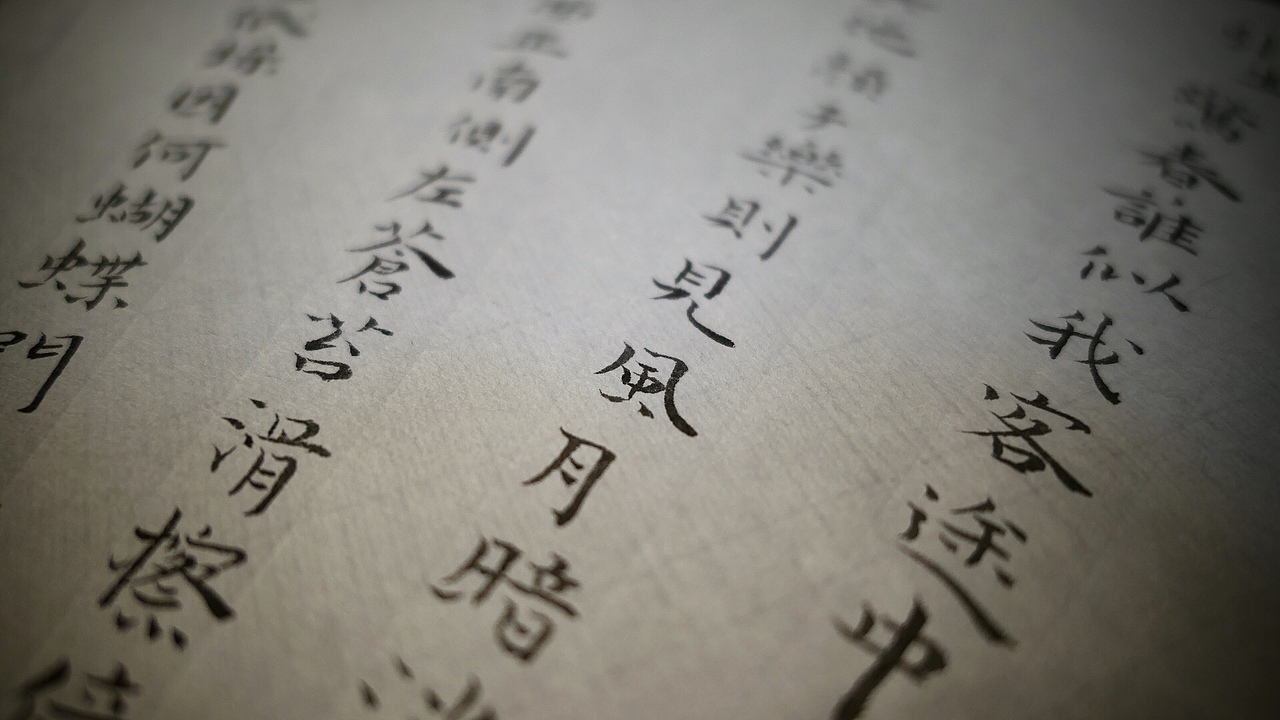 春誰似我客途中
子樂則見風月暗
正南側左蒼苔滑擦
因何蝴蝶門